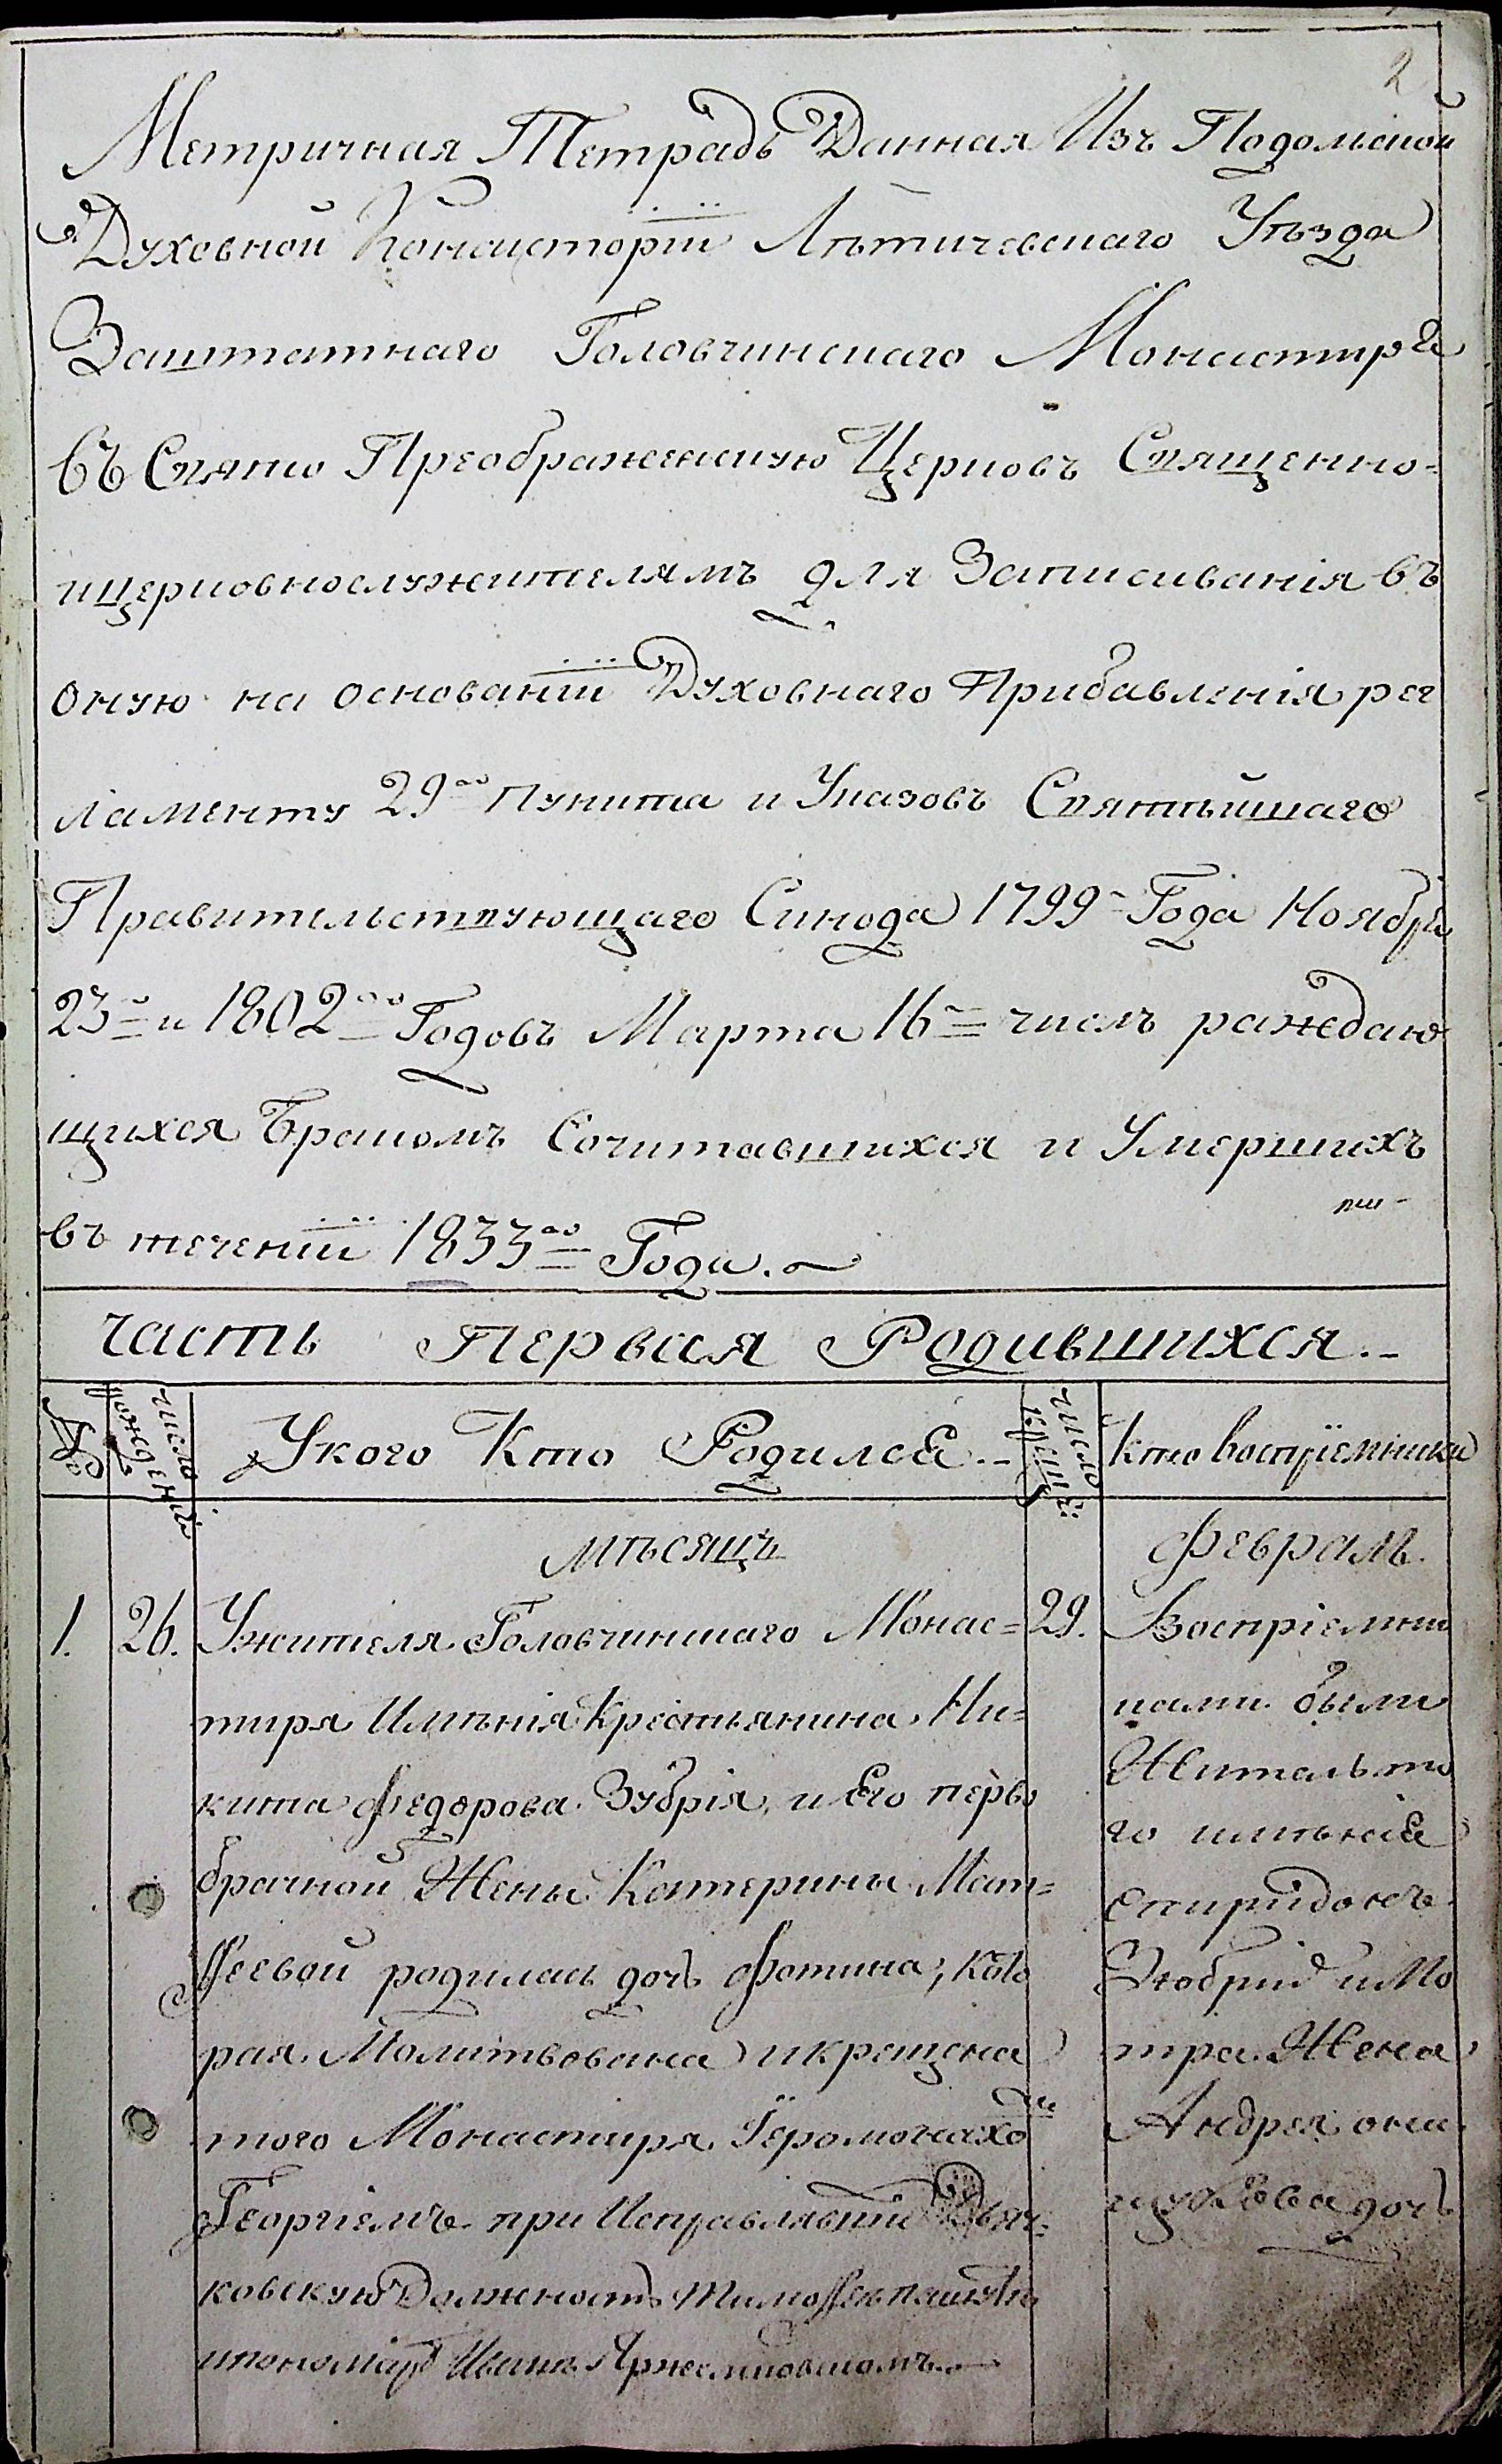 2
Метричная Тетрадь Данная Изъ Подольской
Духовной Консисторіи Лѣтичевскаго Уѣзда
Заштатнаго Головчинскаго Монастиря
въ Свято Преображенскую Церковъ Священно-
ицерковнослужителямъ для Записиванія въ
оную на основаніи Духовнаго Прибавленія рег
ламенту 29го пункта и Указовъ Святѣйшаго
Правительствующаго Синода 1799 Года Ноября
23го и 1802го Годовъ Марта 16го числъ раждаю
щихся Бракомъ Сочитавшихся и Умершихъ
въ теченіи 1833го Года.
часть первая Родившихся.-
№ число рожденій Укого Кто Родился.- число крещ: кто воспріемники
мѣсяцъ февраль.
1. 26. Ужителя Головчинскаго Монас= 29. Воспріемни
тиря Имѣнія Крестьянина Ни=
кита Федорова Зубрія, и Его перво
брачной Жены Катерины Мат=
ѳеевой родилась дочь Фотина, кото
рая Молитвована и крещена
того Монастиря Іеромонахо
мъ
Георгіемъ при Исправлявши Дьяч=
ковскую Должность Тимоѳею
ипономарѣ Иванѣ
ками были
Житель то
го имѣнія
Спиридонъ
Зюбрій и Мо
тра Жена
Андрея
дочь